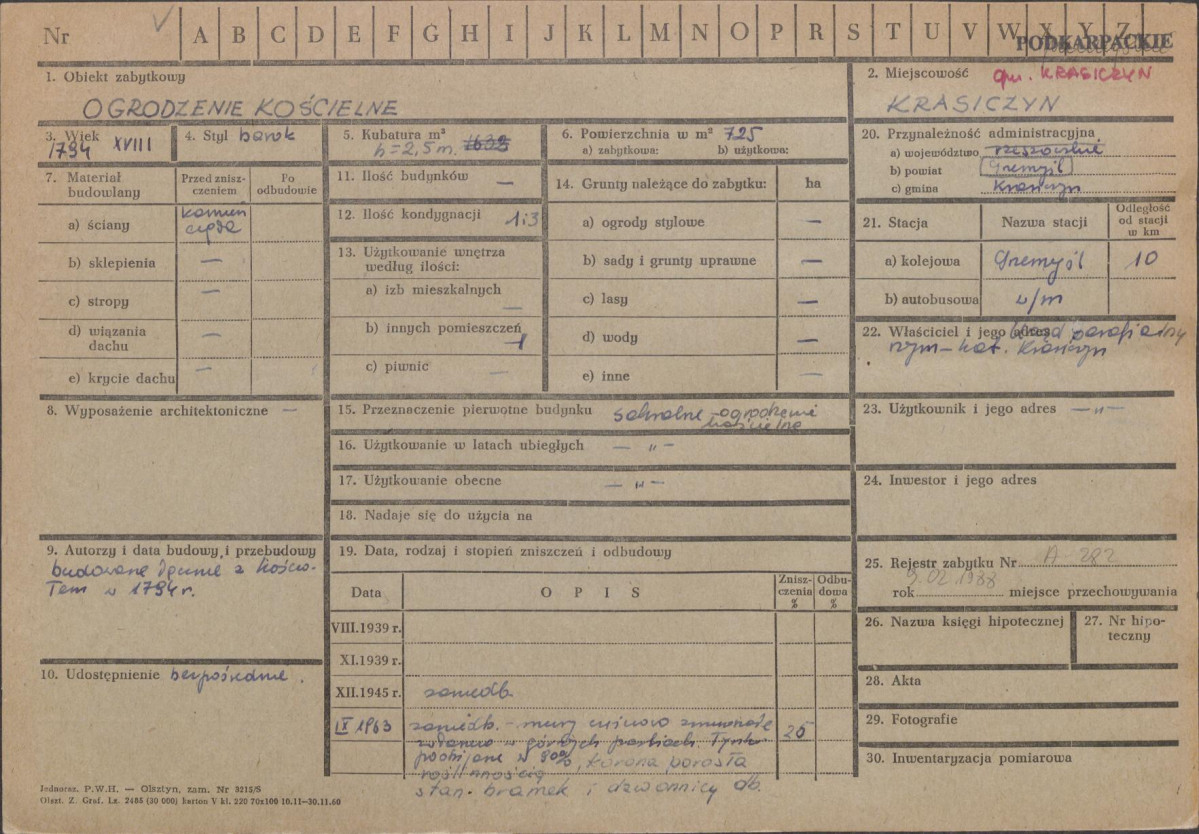 Nr A B C D E F G H I J K L M N O P R S T U V W X Y Z
PODKARPACKIE
1. Obiekt zabytkowy
OGRODZENIE KOŚCIELNE
2. Miejscowość gm. KRASICZYN
KRASICZYN
3. Wiek XVIII
1794
4. Styl barok
5. Kubatura m³
h=2,5 m.
6. Powierzchnia w m² 725
a) zabytkowa: b) użytkowa:
20. Przynależność administracyjna
a) województwo rzeszowskie
b) powiat Przemyśl
c) gmina Krasiczyn
7. Materiał budowlany
Przed zniszczeniem
Po odbudowie
a) ściany kamień cegła
b) sklepienia —
c) stropy —
d) wiązania dachu —
e) krycie dachu —
11. Ilość budynków —
12. Ilość kondygnacji 1i3
13. Użytkowanie wnętrza według ilości:
a) izb mieszkalnych —
b) innych pomieszczeń
c) piwnic —
14. Grunty należące do zabytku: ha
a) ogrody stylowe —
b) sady i grunty uprawne —
c) lasy —
d) wody —
e) inne —
21. Stacja Nazwa stacji Odległość od stacji w km
a) kolejowa Przemyśl 10
b) autobusowa w/m
22. Właściciel i jego adres Urząd parafialny
rzym-kat. Krasiczyn
8. Wyposażenie architektoniczne —
15. Przeznaczenie pierwotne budynku sakralne – ogrodzenie
kościelne
16. Użytkowanie w latach ubiegłych — „ —
17. Użytkowanie obecne — „ —
18. Nadaje się do użycia na
23. Użytkownik i jego adres — „ —
24. Inwestor i jego adres
9. Autorzy i data budowy i przebudowy
budowane łącznie z kościo-
łem w 1794 r.
10. Udostępnienie bezpośrednie.
19. Data, rodzaj i stopień zniszczeń i odbudowy
Data OPIS Zniszczenia % Odbudowa %
VIII.1939 r.
XI.1939 r.
XII.1945 r. zaniedb.
IX 1963 zaniedb. – mury 25
w górnych partiach. Tynki
w 80%, korona porosła
roślinnością
stan. bramek i dzwonnicy db.
25. Rejestr zabytku Nr A-282
rok 9.02.1988 miejsce przechowywania
26. Nazwa księgi hipotecznej
27. Nr hipoteczny
28. Akta
29. Fotografie
30. Inwentaryzacja pomiarowa
Jednoraz. P.W.H. — Olsztyn, zam. Nr 3215/S
Olszt. Z. Graf. Lz. 2485 (30 000) karton V kl. 220 70x100 10.11—30.11.60